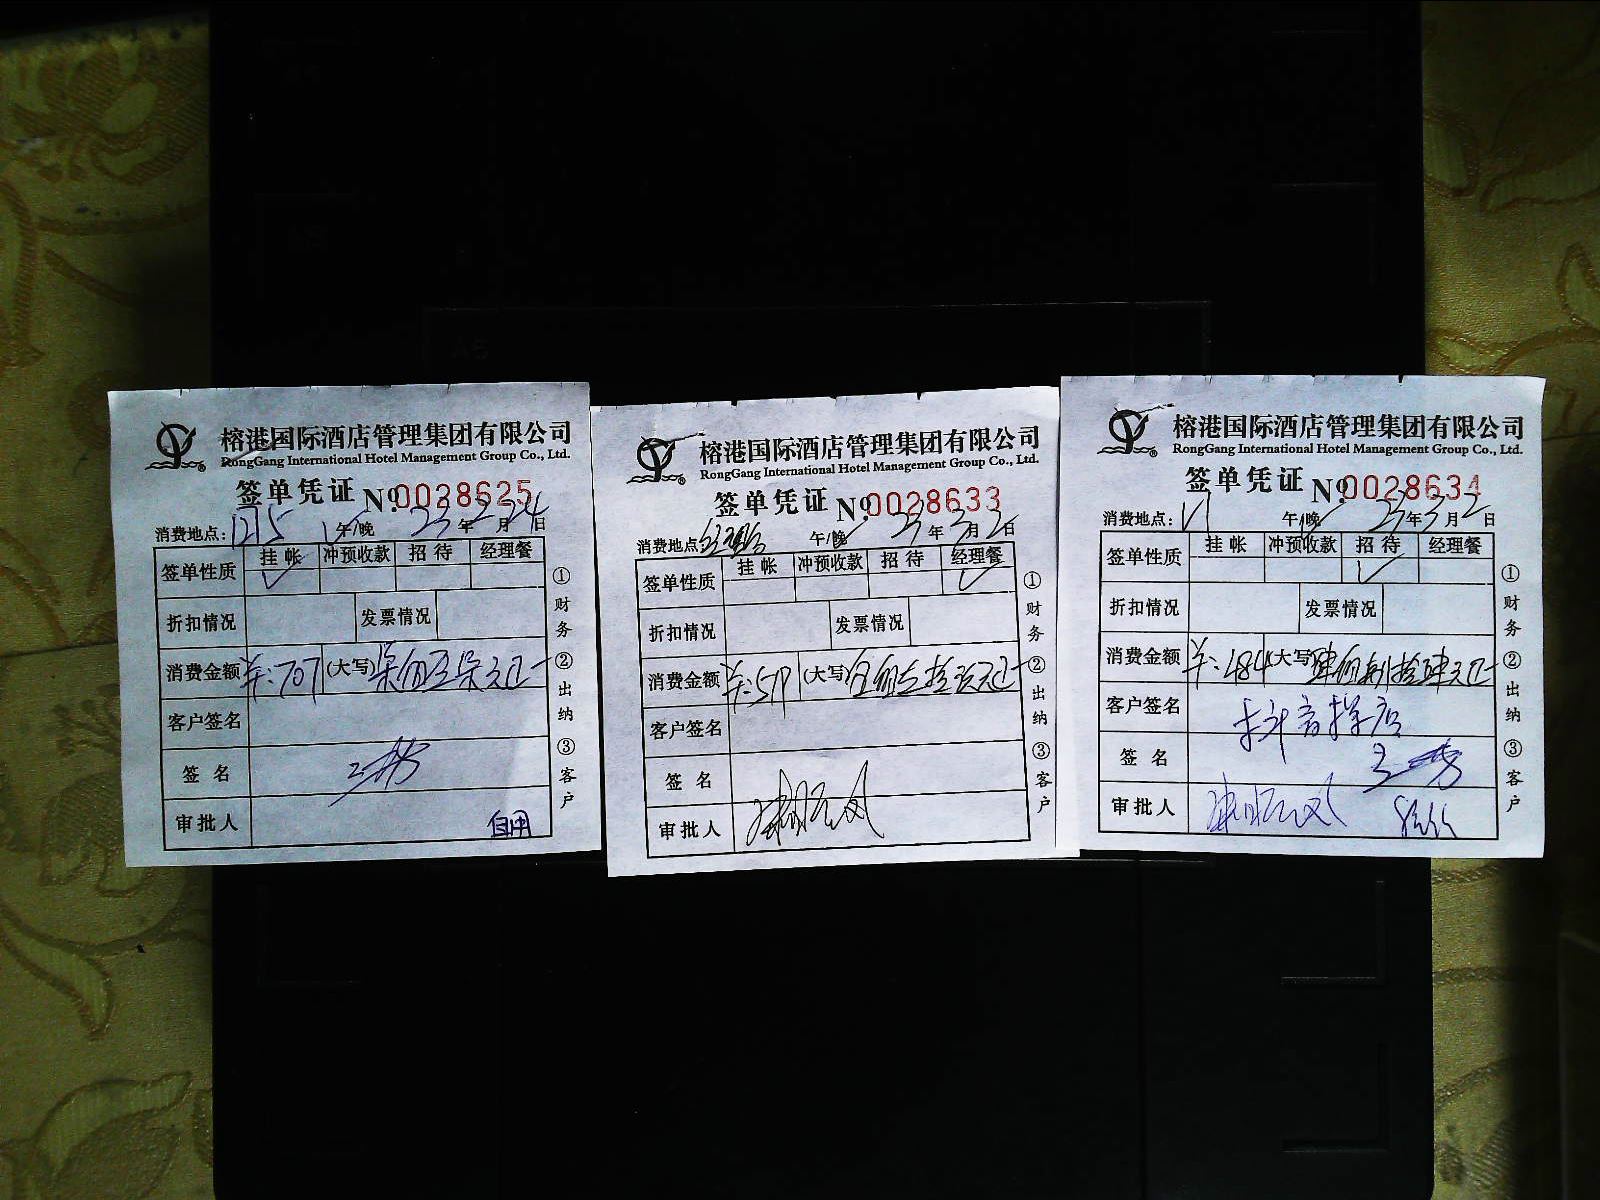 榕港国际酒店管理集团有限公司
RongGang International Hotel Management Group Co., Ltd.
签单凭证 No.0028625
消费地点: 1215 午/晚 23年2月24日
签单性质 挂帐 冲预收款 招待 经理餐
折扣情况 发票情况
消费金额 ¥:707 (大写) 柒佰零柒元正
客户签名
签名
审批人 自用
①财务 ②出纳 ③客户
榕港国际酒店管理集团有限公司
RongGang International Hotel Management Group Co., Ltd.
签单凭证 No.0028633
消费地点 午/晚 23年3月2日
签单性质 挂帐 冲预收款 招待 经理餐
折扣情况 发票情况
消费金额 (大写)
客户签名
签名
审批人
①财务 ②出纳 ③客户
榕港国际酒店管理集团有限公司
RongGang International Hotel Management Group Co., Ltd.
签单凭证 No.0028634
消费地点: 午/晚 23年3月2日
签单性质 挂帐 冲预收款 招待 经理餐
折扣情况 发票情况
消费金额 ¥:484 (大写) 肆佰捌拾肆元正
客户签名 抖音探店
签名
审批人
①财务 ②出纳 ③客户